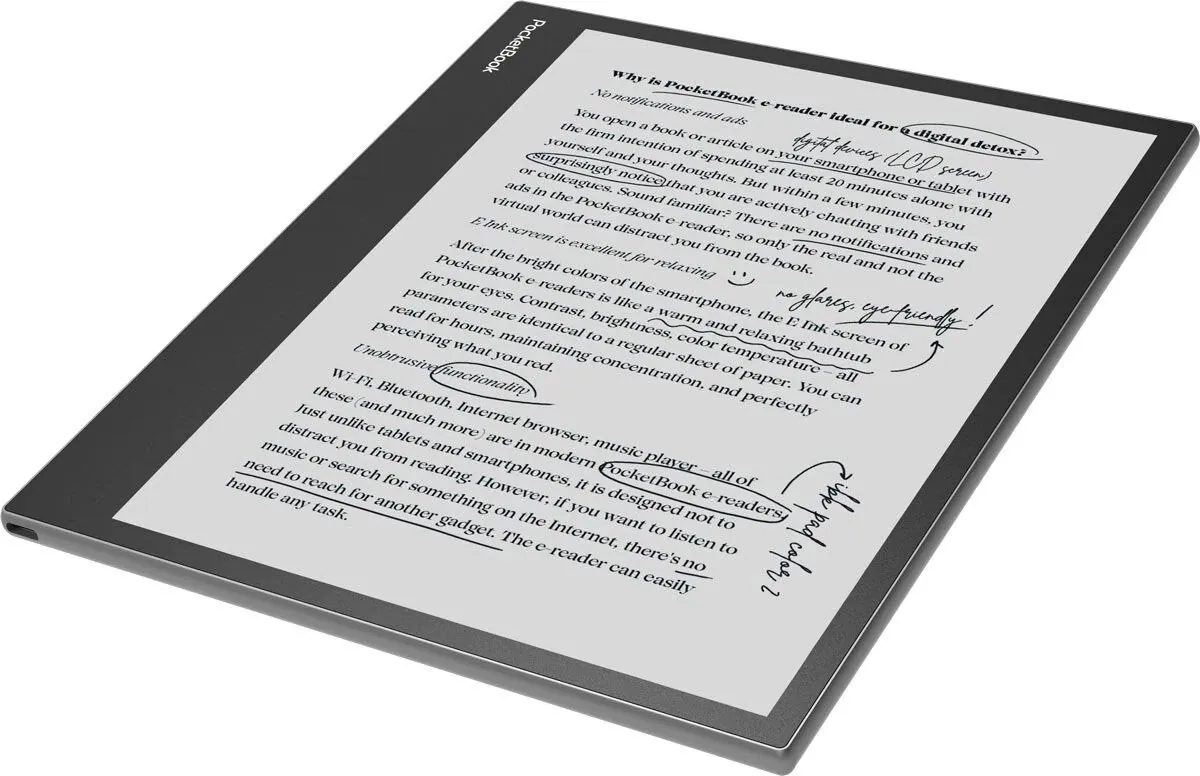 PocketBook
Why is PocketBook e-reader ideal for a digital detox?
No notifications and ads
digital devices (LCD screen)
You open a book or article on your smartphone or tablet with
the firm intention of spending at least 20 minutes alone with
yourself and your thoughts. But within a few minutes, you
surprisingly notice that you are actively chatting with friends
or colleagues. Sound familiar? There are no notifications and
ads in the PocketBook e-reader, so only the real and not the
virtual world can distract you from the book.
E Ink screen is excellent for relaxing
no glares, eye-friendly!
After the bright colors of the smartphone, the E Ink screen of
PocketBook e-readers is like a warm and relaxing bathtub
for your eyes. Contrast, brightness, color temperature – all
parameters are identical to a regular sheet of paper. You can
read for hours, maintaining concentration, and perfectly
perceiving what you red.
Unobtrusive functionality
Wi-Fi, Bluetooth, Internet browser, music player – all of
these (and much more) are in modern PocketBook e-readers.
Just unlike tablets and smartphones, it is designed not to
distract you from reading. However, if you want to listen to
music or search for something on the Internet, there's no
need to reach for another gadget. The e-reader can easily
handle any task.
Ink pad color 2